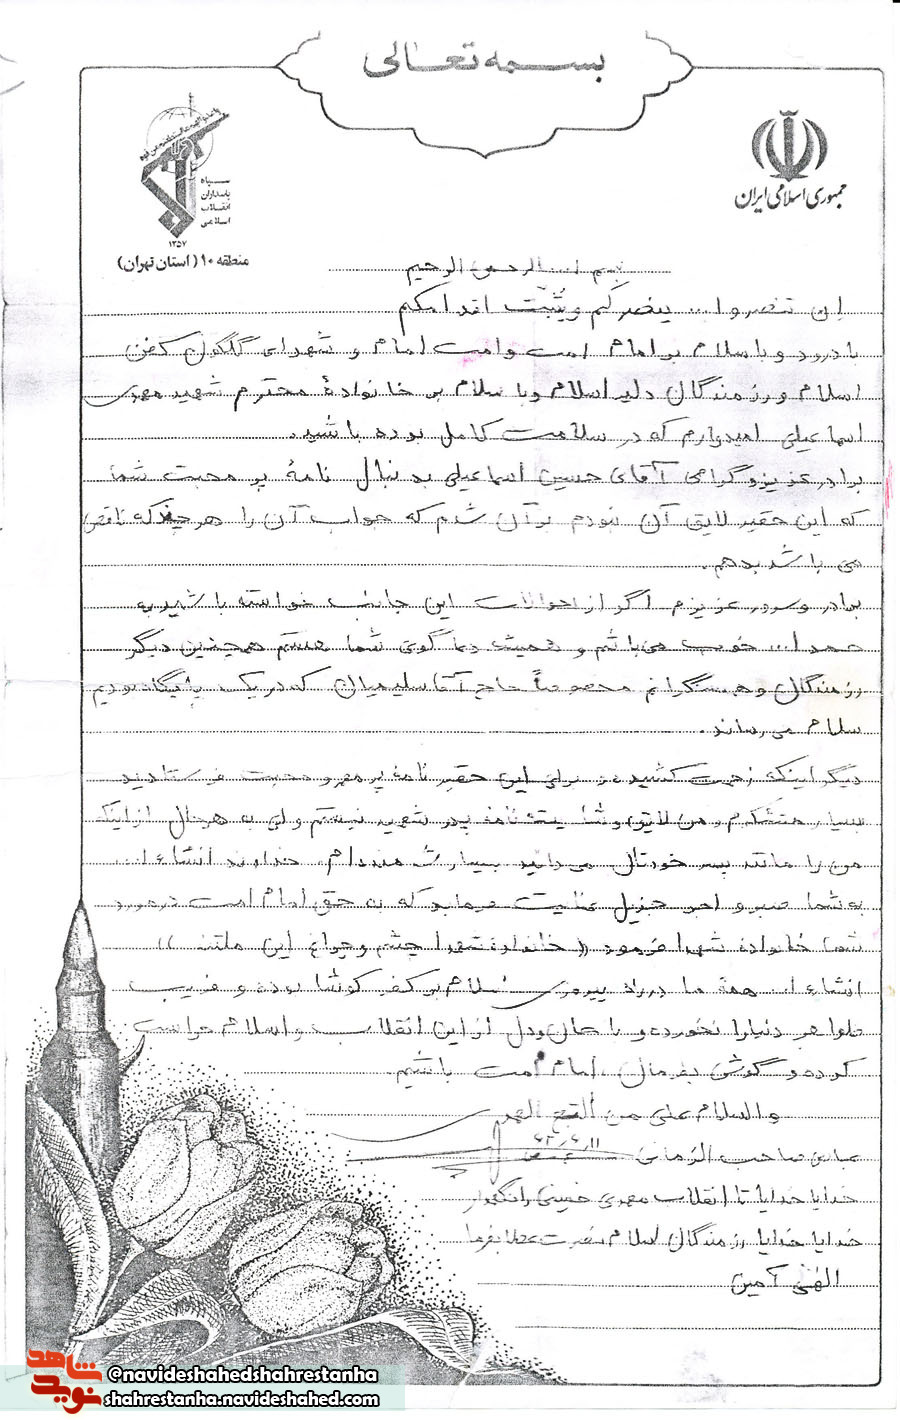 بسمه تعالی
جمهوری اسلامی ایران
سپاه
پاسداران
انقلاب
اسلامی
۱۳۵۷
منطقه ۱۰ (استان تهران)
بسم ا... الرحمن الرحیم
ان تنصروا ا... ینصرکم و یثبت اقدامکم
با درود و با سلام بر امام امت و امت امام و شهدای گلگون کفن
اسلام و رزمندگان دلیر اسلام و با سلام بر خانوادهٔ محترم شهید مهدی
اسماعیلی امیدوارم که در سلامت کامل بوده باشید.
برادر عزیز و گرامی آقای حسین اسماعیلی بدنبال نامهٔ پر محبت شما
که این حقیر لایق آن نبودم بر آن شدم که جواب آن را هر چند که ناقص
می باشد بدهم.
برادر و سرور عزیزم اگر از احوالات این جانب خواسته باشید به
حمد ا... خوب می باشم و همیشه دعاگوی شما هستم همچنین دیگر
رزمندگان و همسنگرانم مخصوصاً حاج آقا سلیمیان که در یک پایگاه بودیم
سلام می رساند.
دیگر اینکه زحمت کشیده و برای این حقیر نامهٔ پر مهر و محبت فرستادید
بسیار متشکرم و من لایق پدر شهید نیستم ولی به هر حال از اینکه
من را مانند پسر خودتان می دانید بسیار شرمنده ام. خداوند انشاء ا...
به شما صبر و اجر جزیل عنایت فرماید که به حق امام امت در مورد
شما خانوادهٔ شهدا فرمود (( خانوادهٔ شهدا چشم و چراغ این ملتند ))
انشاء ا... همهٔ ما در راه پیروزی اسلام بر کفر کوشا بوده و فریب
ظواهر دنیا را نخورده و با جان و دل از این انقلاب و اسلام حراست
کرده و گوش بفرمان امام امت باشیم.
و السلام علی من التبع الهدی
عباس صاحب الزمانی ۶۳/۶/۱۱
خدایا خدایا تا انقلاب مهدی خمینی را نگهدار
خدایا خدایا رزمندگان اسلام نصرت عطا بفرما
الهی آمین
شاهد
نوید
@navideshahedshahrestanha
shahrestanha.navideshahed.com